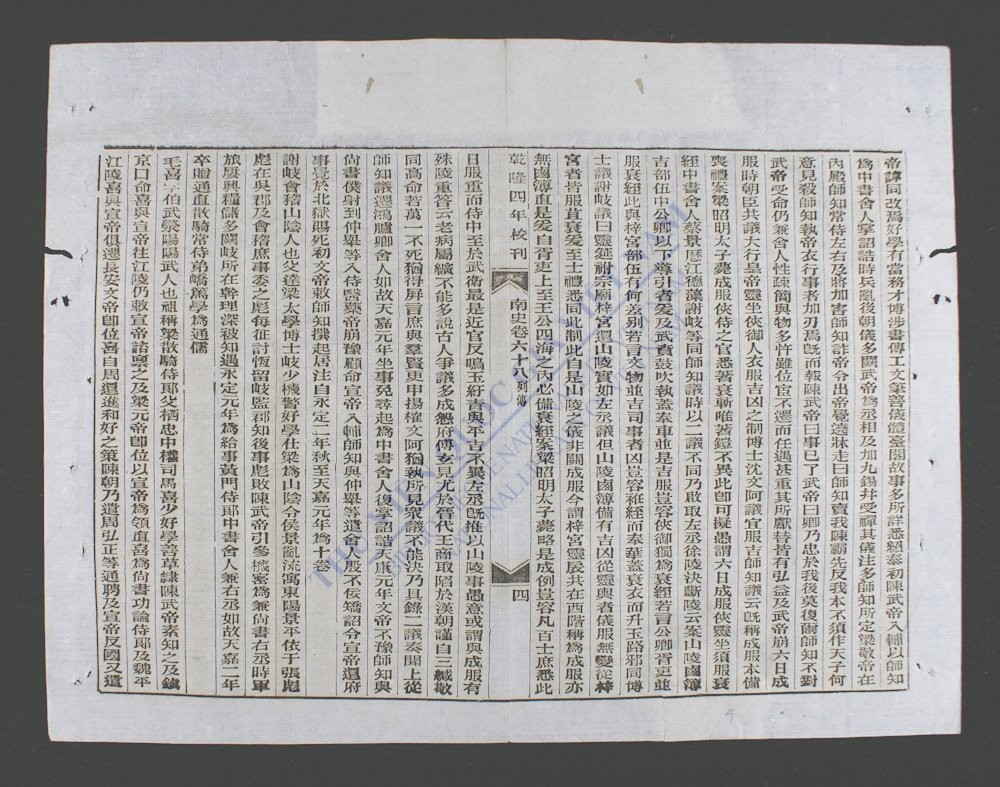 帝諱同改焉好學有當務才博涉書傳工文筆善儀體臺閣故事多所詳悉紹泰初陳武帝入輔以師知
爲中書舍人掌詔誥時兵亂後朝儀多闕武帝爲丞相及加九錫并受禪其儀注多師知所定梁敬帝在
內殿師知常侍左右及將加害師知詐帝令出帝覺遶牀走曰師知賣我陳霸先反我本不須作天子何
意見殺師知執帝衣行事者加刃焉旣而報陳武帝曰事已了武帝曰卿乃忠於我後莫復爾師知不對
武帝受命仍兼舍人性疎簡與物多忤雖位宦不遷而任遇甚重其所獻替皆有弘益及武帝崩六日成
服時朝臣共議大行皇帝靈坐俠御人衣服吉凶之制博士沈文阿議宜服吉師知議云旣稱成服本備
喪禮案梁昭明太子薨成服俠侍之官悉著衰斬唯著鎧不異此卽可擬愚謂六日成服俠靈坐須服衰
絰中書舍人蔡景歷江德藻謝岐等同師知議時以二議不同乃啟取左丞徐陵決斷陵云案山陵鹵簿
吉部伍中公卿以下導引者爰及武賁鼓吹執蓋奉車並是吉服豈容俠御獨爲衰絰若言公卿胥吏並
服衰絰此與梓宮部伍有何差別若言文物並吉司事者凶豈容袵絰而奉華蓋衰衣而升玉路邪同博
士議謝岐議曰靈筵祔宗廟梓宮還山陵實如左丞議但山陵鹵簿備有吉凶從靈輿者儀服無變從梓
宮者皆服苴衰爰至士禮悉同此制此自是山陵之儀非關成服今謂梓宮靈扆共在西階稱爲成服亦
無鹵簿直是爰自胥吏上至王公四海之內必備衰絰案梁昭明太子薨略是成例豈容凡百士庶悉此
乾隆四年校刊
南史卷六十八列傳
四
日服重而侍中至於武衛最是近官反鳴玉紆青與平吉不異左丞旣推以山陵事愚意或謂與成服有
殊陵重答云老病屬纊不能多說古人爭議多成怨府傅玄見尤於晉代王商取陷於漢朝謹自三緘敬
同高命若萬一不死猶得展言庶與羣賢更申揚搉文阿猶執所見衆議不能決乃具錄二議奏聞上從
師知議遷鴻臚卿舍人如故天嘉元年坐事免尋起爲中書舍人復掌詔誥天康元年文帝不豫師知與
尚書僕射到仲舉等入侍醫藥帝崩豫顧命宣帝入輔師知與仲舉等遣舍人殷不佞矯詔令宣帝還府
事覺於北獄賜死初文帝敕師知撰起居注自永定二年秋至天嘉元年爲十卷
謝岐會稽山陰人也父達梁太學博士岐少機警好學仕梁爲山陰令侯景亂流寓東陽景平依于張彪
彪在吳郡及會稽庶事委之彪每征討恆留岐監郡知後事彪敗陳武帝引參機密爲兼尚書右丞時軍
旅屢興糧儲多闕岐所在幹理深被知遇永定元年爲給事黃門侍郎中書舍人兼右丞如故天嘉二年
卒贈通直散騎常侍弟嶠篤學爲通儒
毛喜字伯武滎陽陽武人也祖稱梁散騎侍郎父栖忠中權司馬喜少好學善草隷陳武帝素知之及鎮
京口命喜與宣帝往江陵仍敕宣帝諮稟之及梁元帝卽位以宣帝爲領直喜爲尚書功論侍郎及魏平
江陵喜與宣帝俱遷長安文帝卽位喜自周還進和好之策陳朝乃遣周弘正等通聘及宣帝反國又遣